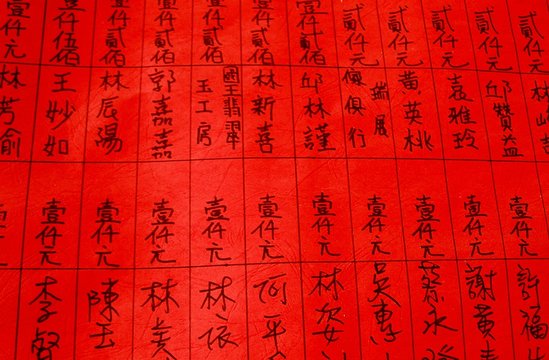 貳仟元
貳仟元 邱贊益
貳仟元 袁雅玲
貳仟元 黃英桃
貳仟元 瑞展傢俱行
壹仟貳佰 邱林謹
壹仟貳佰 林新喜
壹仟貳佰 國王翡翠玉工房
壹仟貳佰 郭嘉嘉
壹仟貳佰 林辰陽
壹仟伍佰 王妙如
壹仟元 林芳愉
壹仟元 許福
壹仟元 謝黃
壹仟元 蔡永
壹仟元 吳惠
壹仟元 林姿
壹仟元 何平
壹仟元 林依
壹仟元 林美
壹仟元 陳玉
壹仟元 李